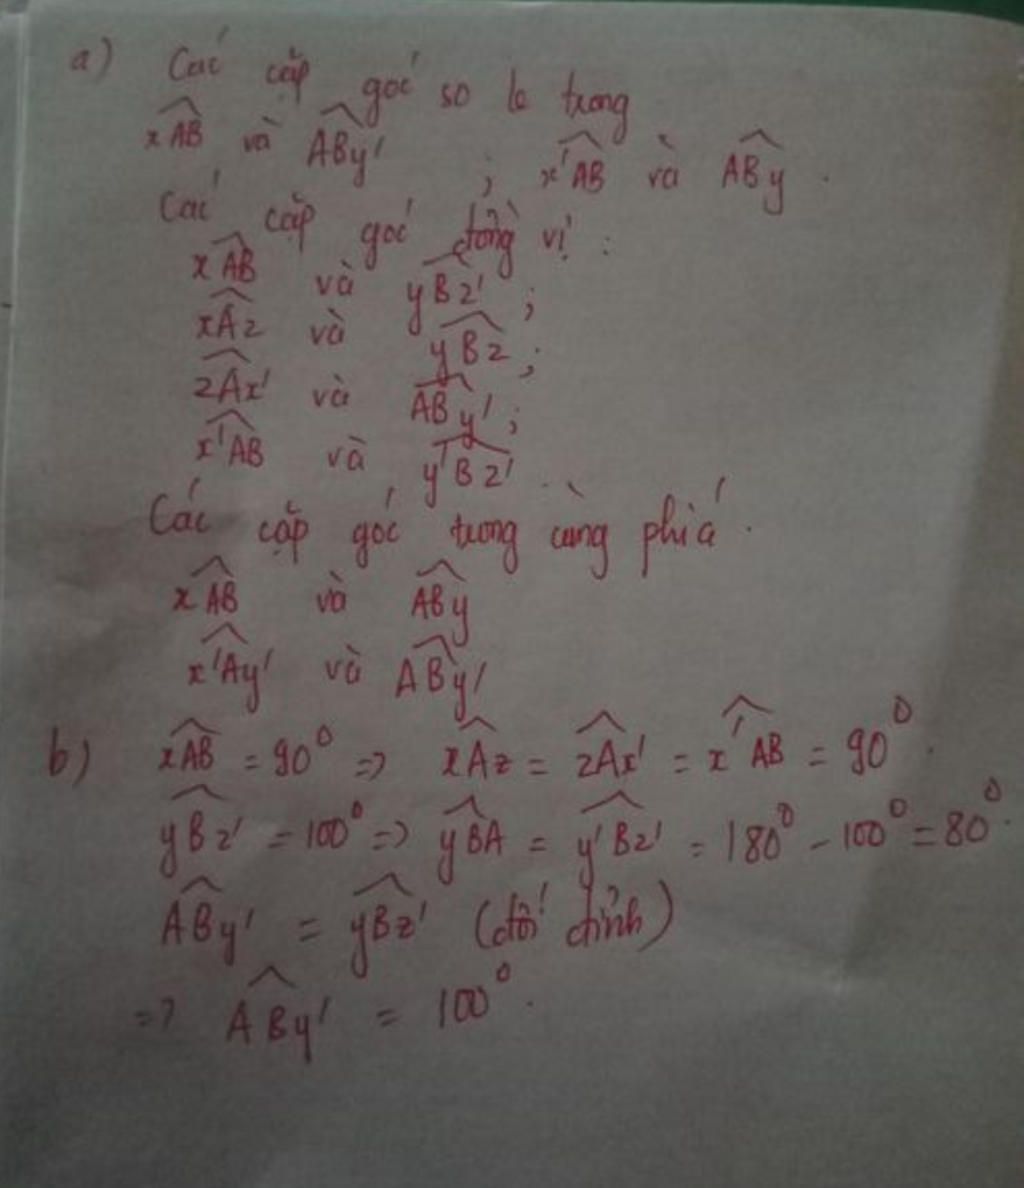 a) Các cặp góc so le trong
$\widehat{xAB}$ và $\widehat{ABy'}$ ; $\widehat{x'AB}$ và $\widehat{ABy}$ .
Các cặp góc đồng vị :
$\widehat{xAB}$ và $\widehat{yBz'}$ ;
$\widehat{xAz}$ và $\widehat{yBz}$ ;
$\widehat{zAx'}$ và $\widehat{ABy'}$ ;
$\widehat{x'AB}$ và $\widehat{y'Bz'}$ .
Các cặp góc trong cùng phía .
$\widehat{xAB}$ và $\widehat{ABy}$
$\widehat{x'Ay'}$ và $\widehat{ABy'}$
b) $\widehat{xAB}$ = 90⁰ => $\widehat{xAz}$ = $\widehat{zAx'}$ = $\widehat{x'AB}$ = 90⁰ .
$\widehat{yBz'}$ = 100⁰ => $\widehat{yBA}$ = $\widehat{y'Bz'}$ = 180⁰ - 100⁰ = 80⁰ .
$\widehat{ABy'}$ = $\widehat{yBz'}$ (đối đỉnh)
=> $\widehat{ABy'}$ = 100⁰ .